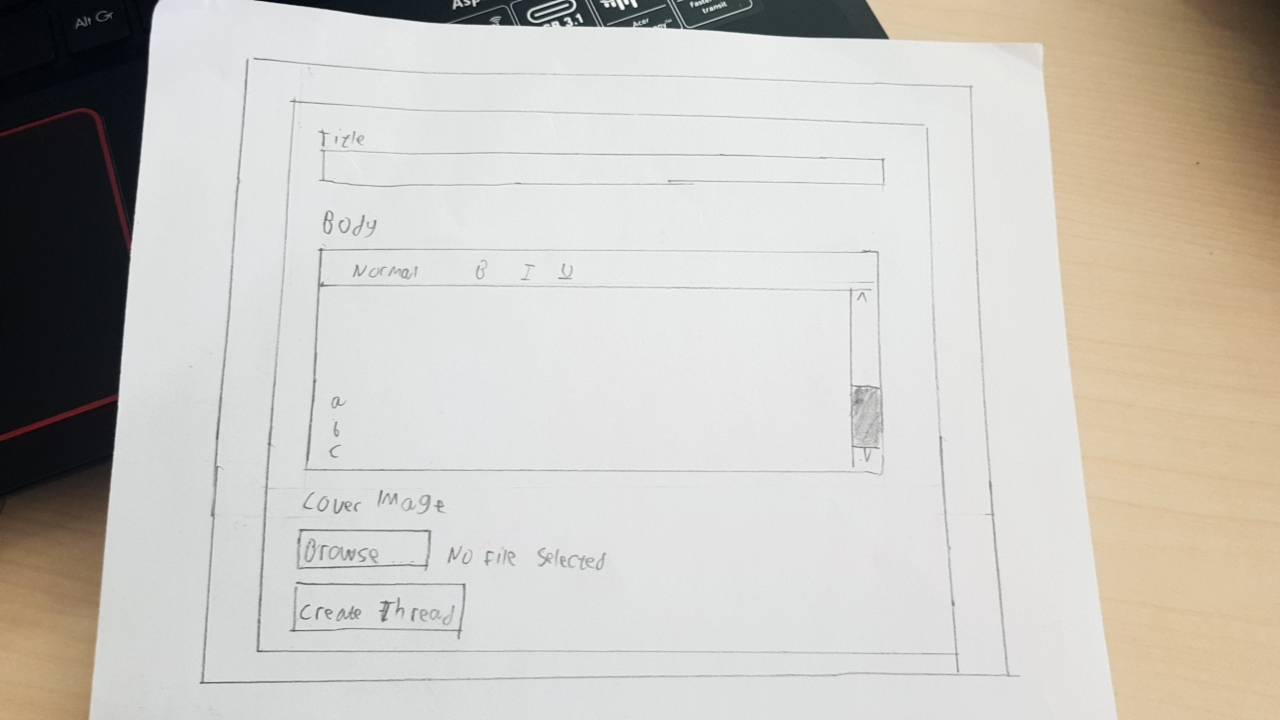 Alt Gr
3.1
Acer
transit
Title
Body
Normal B I U
a
b
c
Cover Image
Browse... No File Selected
Create Thread